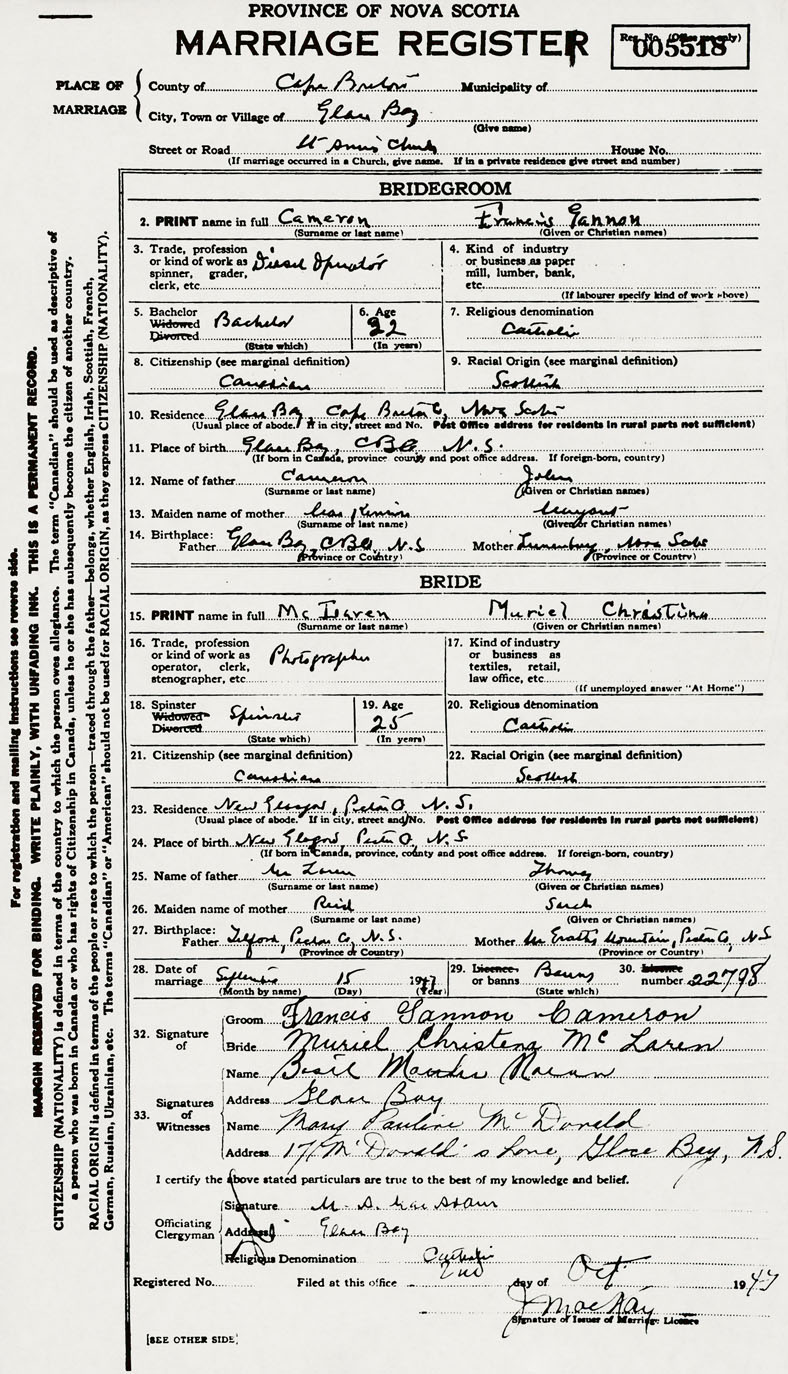 PROVINCE OF NOVA SCOTIA
MARRIAGE REGISTER
Reg. No. (Office use only)
005518
PLACE OF MARRIAGE
County of Cape Breton Municipality of
City, Town or Village of Glace Bay
(Give name)
Street or Road St Ann's Church House No.
(If marriage occurred in a Church, give name. If in a private residence give street and number)
BRIDEGROOM
2. PRINT name in full Cameron Francis Gannon
(Surname or last name) (Given or Christian names)
3. Trade, profession or kind of work as spinner, grader, clerk, etc. Diesel Operator
4. Kind of industry or business as paper mill, lumber, bank, etc.
(If labourer specify kind of work above)
5. Bachelor Widowed Divorced Bachelor
(State which)
6. Age 22
(In years)
7. Religious denomination
Catholic
8. Citizenship (see marginal definition)
Canadian
9. Racial Origin (see marginal definition)
Scottish
10. Residence Glace Bay, Cape Breton Co, Nova Scotia
(Usual place of abode. If in city, street and No. Post Office address for residents in rural parts not sufficient)
11. Place of birth Glace Bay, CBCo N.S.
(If born in Canada, province county and post office address. If foreign-born, country)
12. Name of father Cameron John
(Surname or last name) (Given or Christian names)
13. Maiden name of mother
(Surname or last name) (Given or Christian names)
14. Birthplace:
Father Glace Bay, CBCo, N.S Mother Lunenburg, Nova Scotia
(Province or Country) (Province or Country)
BRIDE
15. PRINT name in full McLaren Muriel Christina
(Surname or last name) (Given or Christian names)
16. Trade, profession or kind of work as operator, clerk, stenographer, etc. Photographer
17. Kind of industry or business as textiles, retail, law office, etc.
(If unemployed answer "At Home")
18. Spinster Widowed Divorced Spinster
(State which)
19. Age 25
(In years)
20. Religious denomination
Catholic
21. Citizenship (see marginal definition)
Canadian
22. Racial Origin (see marginal definition)
Scottish
23. Residence New Glasgow, Pictou Co, N.S.
(Usual place of abode. If in city, street and No. Post Office address for residents in rural parts not sufficient)
24. Place of birth New Glasgow Pictou Co, N.S
(If born in Canada, province, county and post office address. If foreign-born, country)
25. Name of father McLaren Thomas
(Surname or last name) (Given or Christian names)
26. Maiden name of mother Reid Sarah
(Surname or last name) (Given or Christian names)
27. Birthplace:
Father Telford, Pictou Co, N.S. Mother Mountain, Pictou Co, N.S
(Province or Country) (Province or Country)
28. Date of marriage September 15 1947
(Month by name) (Day) (Year)
29. Licence or banns Banns
(State which)
30. Licence number 22798
32. Signature of
Groom Francis Gannon Cameron
Bride Muriel Christena McLaren
33. Signatures of Witnesses
Name Basil
Address Glace Bay
Name Mary Pauline McDonald
Address 17 McDonald's Lane, Glace Bay, N.S.
I certify the above stated particulars are true to the best of my knowledge and belief.
Officiating Clergyman
Signature M. A. MacAdam
Address Glace Bay
Religious Denomination Catholic
Registered No. Filed at this office 2nd day of Oct 1947
J MacKay
Signature of Issuer of Marriage Licence
[SEE OTHER SIDE]
For registration and mailing instructions see reverse side.
MARGIN RESERVED FOR BINDING. WRITE PLAINLY, WITH UNFADING INK. THIS IS A PERMANENT RECORD.
CITIZENSHIP (NATIONALITY) is defined in terms of the country to which the person owes allegiance. The term "Canadian" should be used as descriptive of
a person who was born in Canada or who has rights of Citizenship in Canada, unless he or she has subsequently become the citizen of another country.
RACIAL ORIGIN is defined in terms of the people or race to which the person—traced through the father—belongs, whether English, Irish, Scottish, French,
German, Russian, Ukrainian, etc. The terms "Canadian" or "American" should not be used for RACIAL ORIGIN, as they express CITIZENSHIP (NATIONALITY).